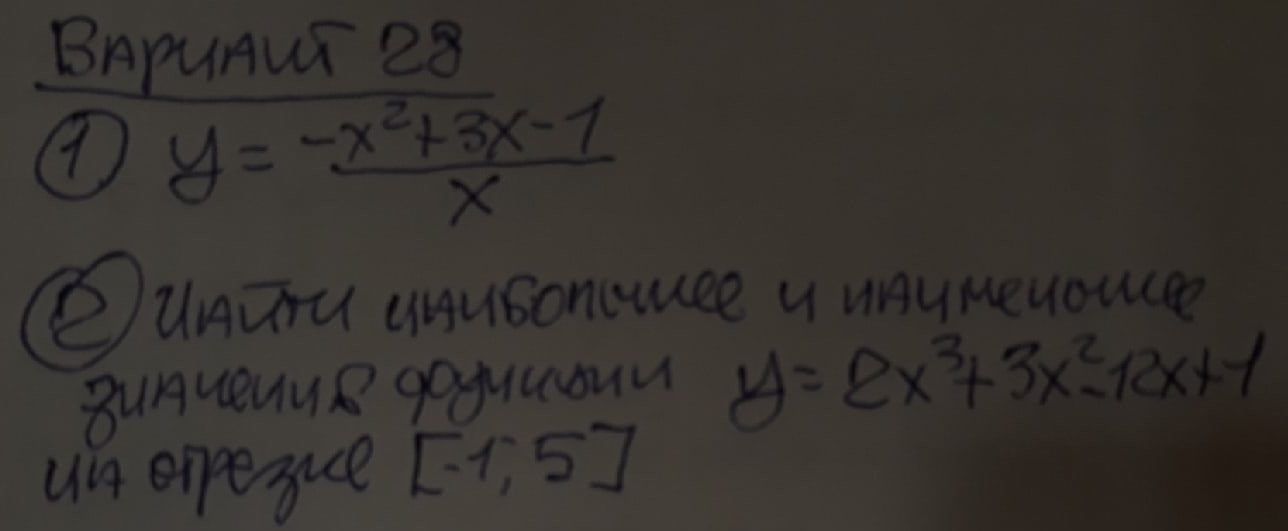 Вариант 28
① y = (-x²+3x-1)/x
② Найти наибольшее и наименьшее
значения функции y = 2x³+3x²-12x+1
на отрезке [-1; 5]